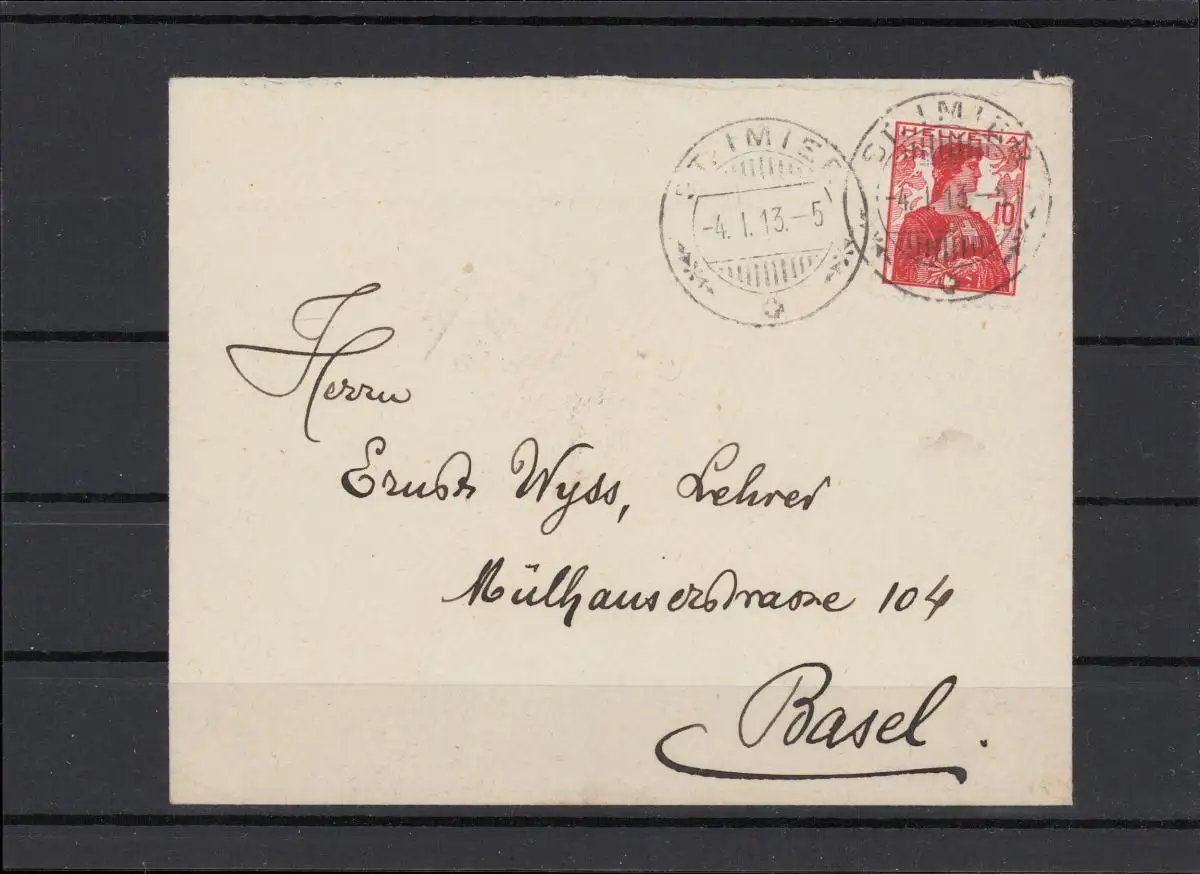 ST. IMIER
-4. I. 13. -5
ST. IMIER
-4. I. 13. -5
HELVETIA
10
Herrn
Ernst Wyss, Lehrer
Mülhauserstrasse 104
Basel.